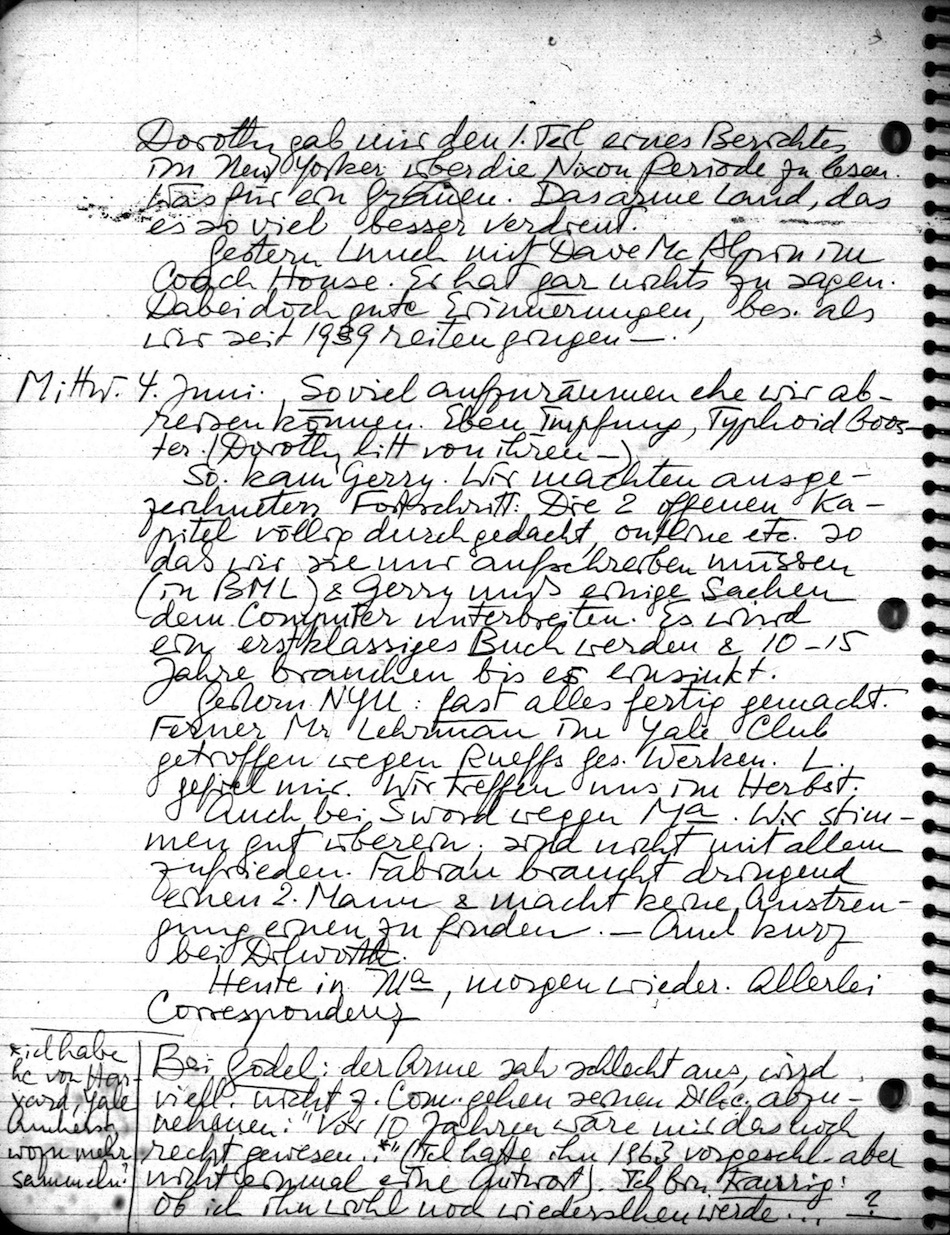 Dorothy gab mir den 1. Teil eines Berichtes
im New Yorker über die Nixon Periode zu lesen.
Was für ein Grauen. Das arme Land, das
es so viel besser verdient.
Gestern Lunch mit Dave McAlpin im
Coach House. Er hat gar nichts zu sagen.
Dabei doch gute Erinnerungen, bes. als
wir seit 1939 reiten gingen —.
Mittw. 4. Juni. Soviel aufzuräumen ehe wir ab-
reisen können. Eben Impfung, Typhoid Boos-
ter. (Dorothy litt von ihren —)
So. kam Gerry. Wir machten ausge-
zeichneten Fortschritt: Die 2 offenen Ka-
pitel völlig durchgedacht, outline etc. so
das wir sie nur aufschreiben müssen
(in BML) & Gerry muß einige Sachen
dem Computer unterbreiten. Es wird
ein erstklassiges Buch werden & 10-15
Jahre brauchen bis es einsinkt.
Gestern NYU: fast alles fertig gemacht.
Ferner Mr Lehrman im Yale Club
getroffen wegen Rueffs ges. Werken. L.
gefiel mir. Wir treffen uns im Herbst.
Auch bei Sword wegen Ma. Wir stim-
men gut überein, sind nicht mit allem
zufrieden. Fabian braucht dringend
einen 2. Mann & macht keine Anstren-
gung einen zu finden. — Auch kurz
bei Dilworth.
Heute in Ma, morgen wieder. Allerlei
Correspondenz
Bei Gödel: der Arme sah schlecht aus, wird
viell. nicht z. Com. gehen seinen Dr h.c. abzu-
nehmen: "Vor 10 Jahren wäre mir das noch
recht gewesen..*" (Ich hatte ihn 1963 vorgeschl. aber
nicht einmal eine Antwort). Ich bin traurig:
Ob ich ihn wohl noch wiedersehen werde... ?
*ich habe
hc von Har-
vard, Yale
Amherst,
wozu mehr
sammeln?